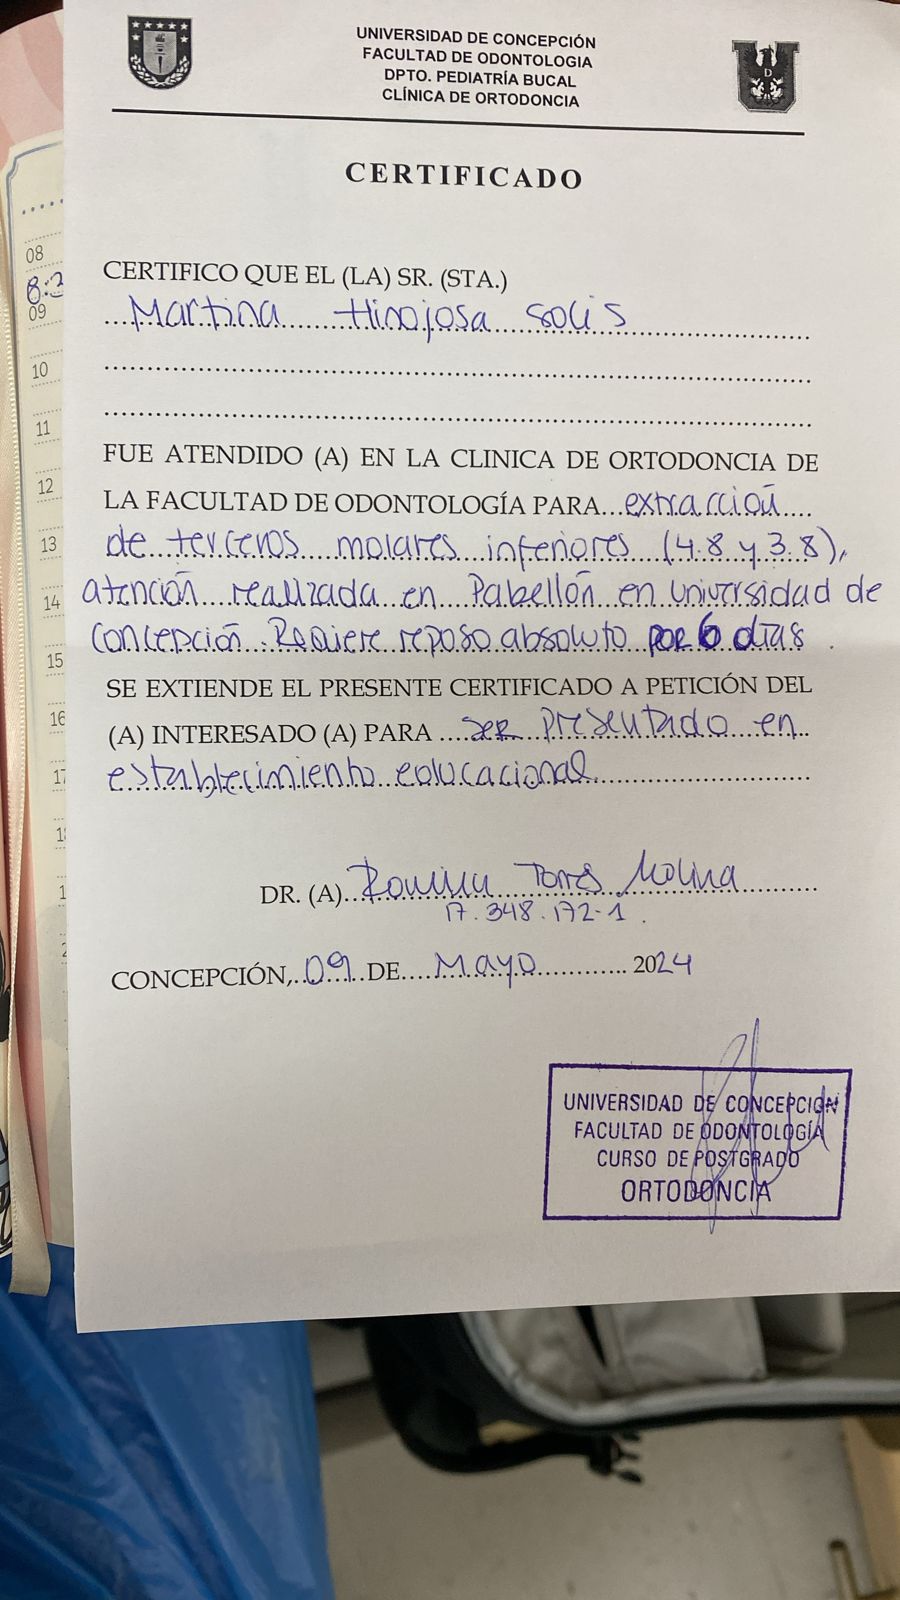 UNIVERSIDAD DE CONCEPCIÓN
FACULTAD DE ODONTOLOGIA
DPTO. PEDIATRÍA BUCAL
CLÍNICA DE ORTODONCIA
CERTIFICADO
CERTIFICO QUE EL (LA) SR. (STA.)
Martina Hinojosa Solis
FUE ATENDIDO (A) EN LA CLINICA DE ORTODONCIA DE
LA FACULTAD DE ODONTOLOGÍA PARA extracción
de terceros molares inferiores (4.8 y 3.8),
atención realizada en Pabellón en Universidad de
Concepción. Requiere reposo absoluto por 6 días.
SE EXTIENDE EL PRESENTE CERTIFICADO A PETICIÓN DEL
(A) INTERESADO (A) PARA ser presentado en
establecimiento educacional
DR. (A) Romina Torres Molina
17.348.172-1.
CONCEPCIÓN, 09 DE Mayo 2024
UNIVERSIDAD DE CONCEPCION
FACULTAD DE ODONTOLOGÍA
CURSO DE POSTGRADO
ORTODONCIA
08
09
10
11
12
13
14
15
16